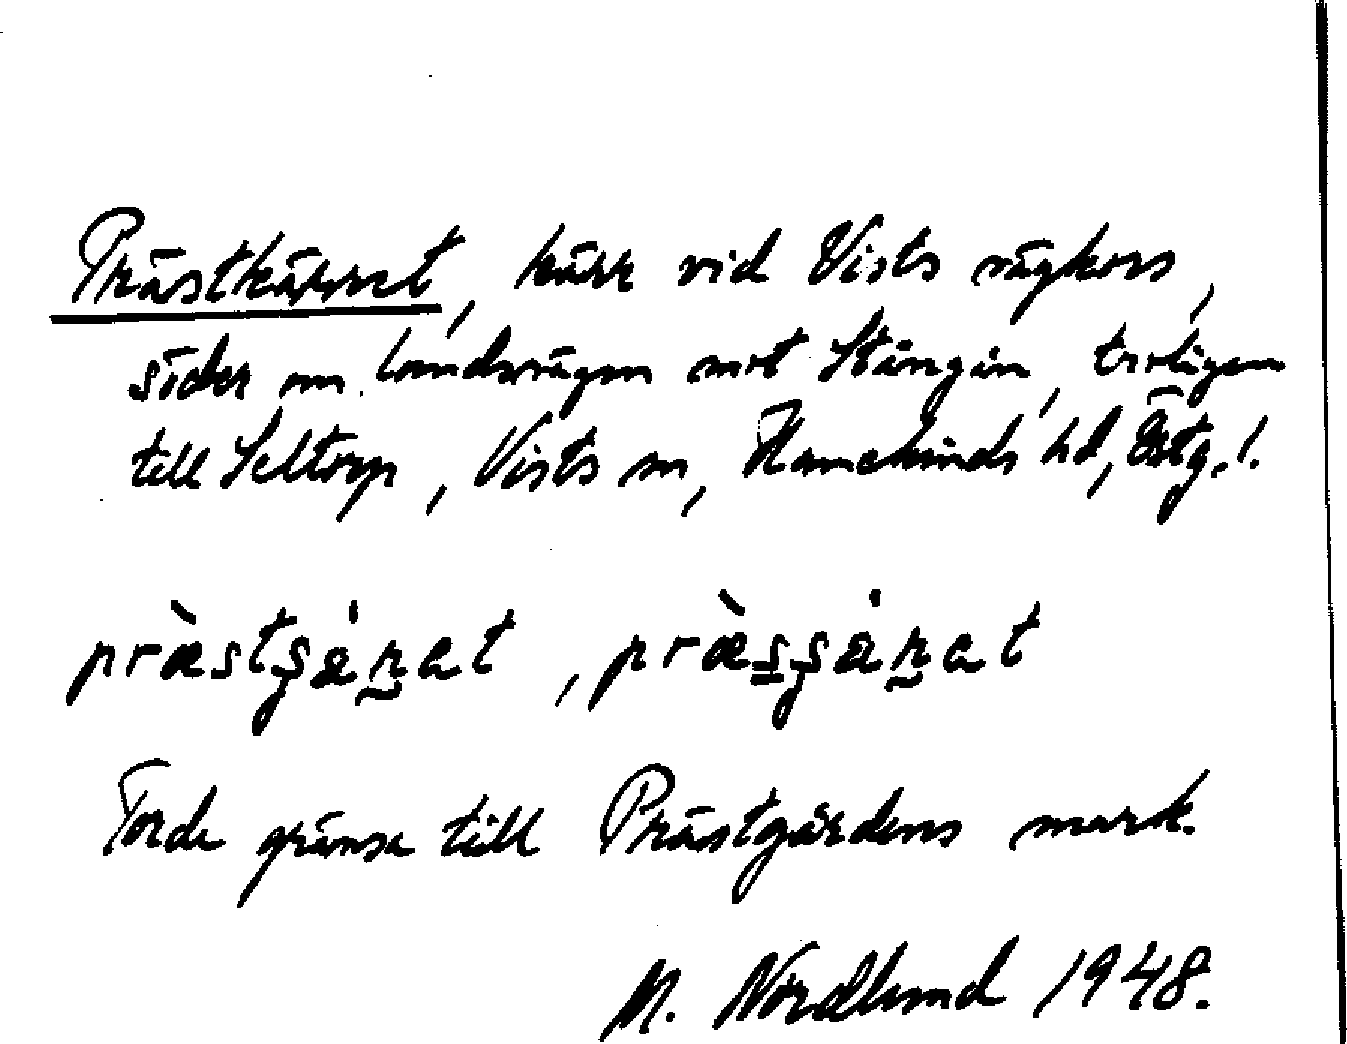 Prästkärret, kärr vid Vists vägkors,
söder om landsvägen mot Stångån, troligen
till Seltorp, Vists sn, Hanekinds hd, Östg. l.
pràstʂáʀat, pràʂʂáʀat
Torde gränsa till Prästgårdens mark.
M. Nordlund 1948.